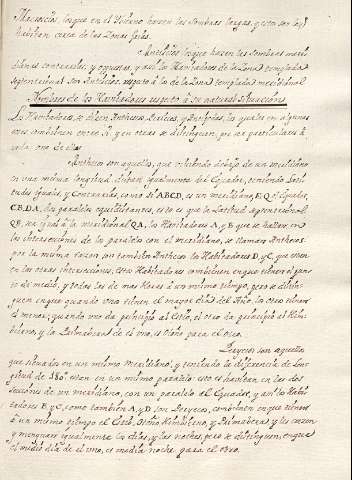 Macrocios, luego en el Verano hacen las sombras largas, y estos son los q.
havitan cerca de las Zonas frias.
Antiscios luego hacen las sombras meri-
dianas contrarias, y opuestas, y asi los Havitadores de la Zona templada
septentrional son Antiscios, respecto à los de la Zona templada meridional
Nombres de los Havitadores respecto à su natural situacion
Los Havitadores, se dicen Antheros, Perecos, y Antipodas, los quales en algunas
cosas combienen entre sí, y en otras se distinguen, por ser particulares à
cada uno de ellos
Antheros son aquellos, que viviendo debajo de un meridiano
en una misma longitud, distan igualmente del Equador, teniendo Lati-
tudes iguales, y Contrarias, como si ABCD, es un meridiano, EQ el Equador,
CB, DA, dos paralelos equidistantes, esto es que la Latitud septentrional
QB, sea igual à la meridional QA, los Havitadores A, y B que se hallan en
las intersecciones de los paralelos con el meridiano, se llaman Antheros.
por la misma razon son tambien Antheros los Havitadores D, y C, que viven
en las otras intersecciones, estos Havitadores combienen en que tienen el pun-
to de medio dia, y todas las de mas Horas à un mismo tiempo, pero se distin-
guen en que quando unos tienen el mayor dia del Año, los otros tienen
el menor; quando uno da principio al Estio, el otro da principio al Him-
bierno, y la Primavera de el uno, es Otoño para el otro.
Perecos son aquellos
que situados en un mismo Meridiano, y teniendo la diferencia de Lon-
gitud de 180° estan en un mismo paralelo: esto es havitan en las dos
secciones de un meridiano, con un paralelo al Equador, y asi los Havi-
tadores B, y C, como tambien A, y D son Perecos, combienen en que tienen
à un mismo tiempo el Estio, Otoño, Himbierno, y Primavera, y les crecen
y menguan igualmente los dias, y las noches, pero se distinguen, en que
el medio dia de el uno, es media noche para el otro.